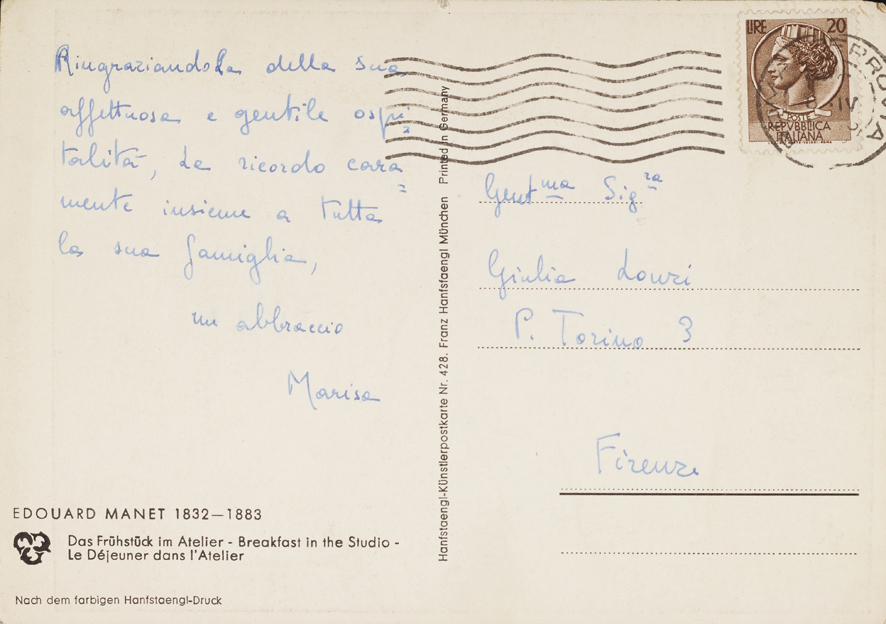 RingraziandoLa della sua
affettuosa e gentile ospi=
talità, La ricordo cara=
mente insieme a tutta
la sua famiglia,
un abbraccio
Marisa
EDOUARD MANET 1832—1883
Das Frühstück im Atelier - Breakfast in the Studio -
Le Déjeuner dans l'Atelier
Nach dem farbigen Hanfstaengl-Druck
Hanfstaengl-Künstlerpostkarte Nr. 428. Franz Hanfstaengl München Printed in Germany
LIRE 20
POSTE
REPVBBLICA
ITALIANA
Gent.ma Sig.ra
Giulia
P. Torino 3
Firenze